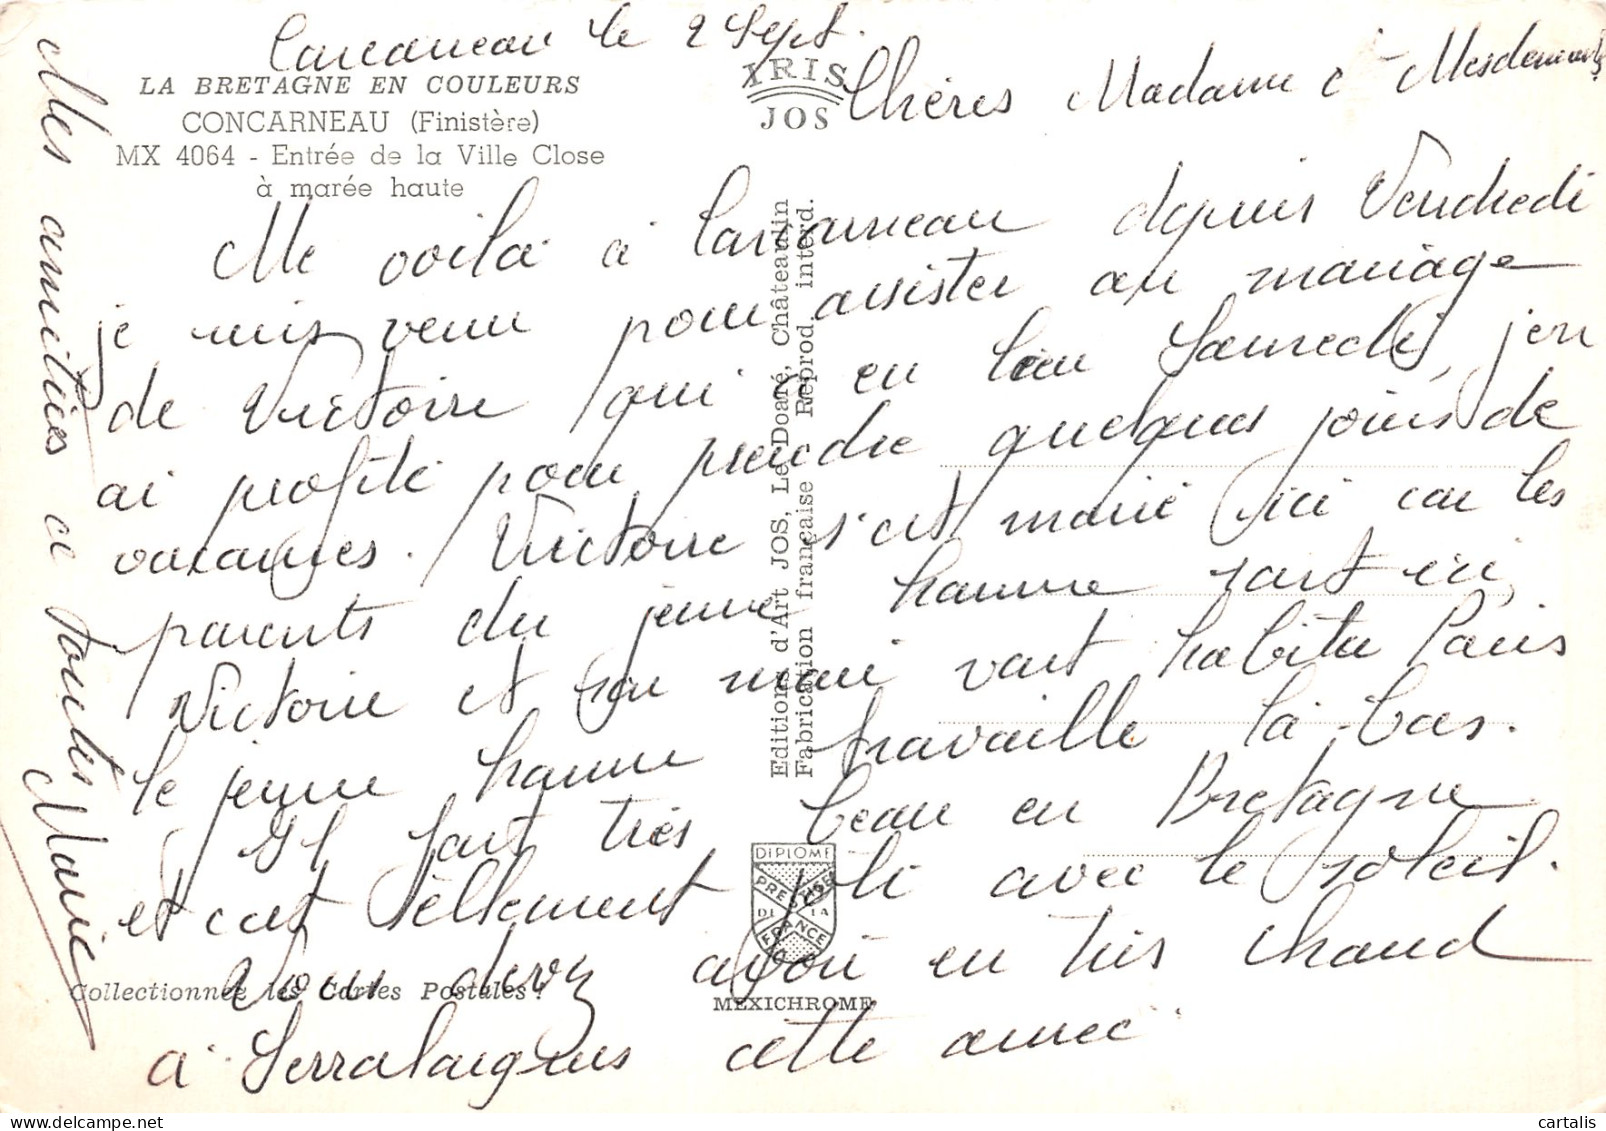 Concarneau le 2 Sept.
LA BRETAGNE EN COULEURS
CONCARNEAU (Finistère)
MX 4064 - Entrée de la Ville Close
à marée haute
IRIS
JOS
Chères Madame et Mesdemoiselles
Me voilà à Concarneau depuis Vendredi
je suis venu pour assister au mariage
de Victoire qui a eu lieu Samedi, j'en
ai profité pour prendre quelques jours de
vacances. Victoire s'est marié ici car les
parents du jeune homme sont ici,
Victoire et son mari vont habiter Paris
le jeune homme travaille là-bas.
Il fait très beau en Bretagne
et c'est tellement joli avec le soleil.
Vous devez avoir eu très chaud
à Serralongue cette année
Mes amitiés à toutes
Marie
Editions d'Art JOS, Le Doaré, Châteaulin
Fabrication française Reprod. interd.
DIPLOME
PRESTIGE
DE LA
FRANCE
Collectionnez les Cartes Postales!
MEXICHROME
cartalis